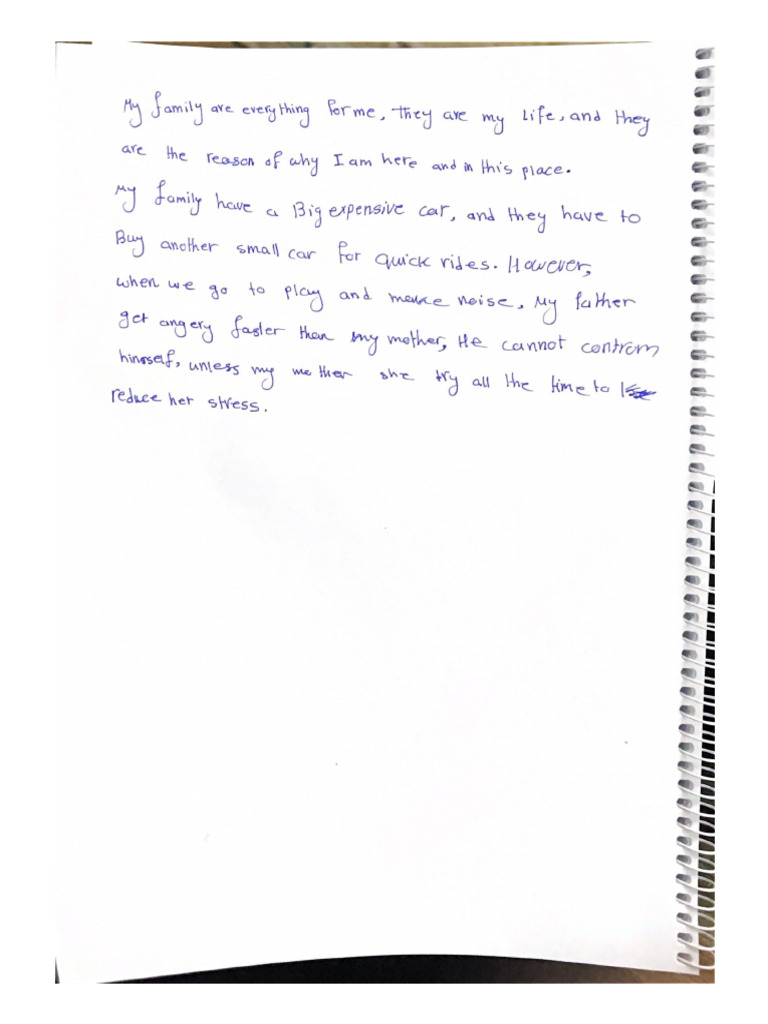 My family are everything for me, they are my life, and they
are the reason of why I am here and in this place.
My family have a Big expensive car, and they have to
Buy another small car for quick rides. However,
when we go to play and make noise, My father
get angery faster than my mother, He cannot controm
himself, unless my mother she try all the time to
reduce her stress.